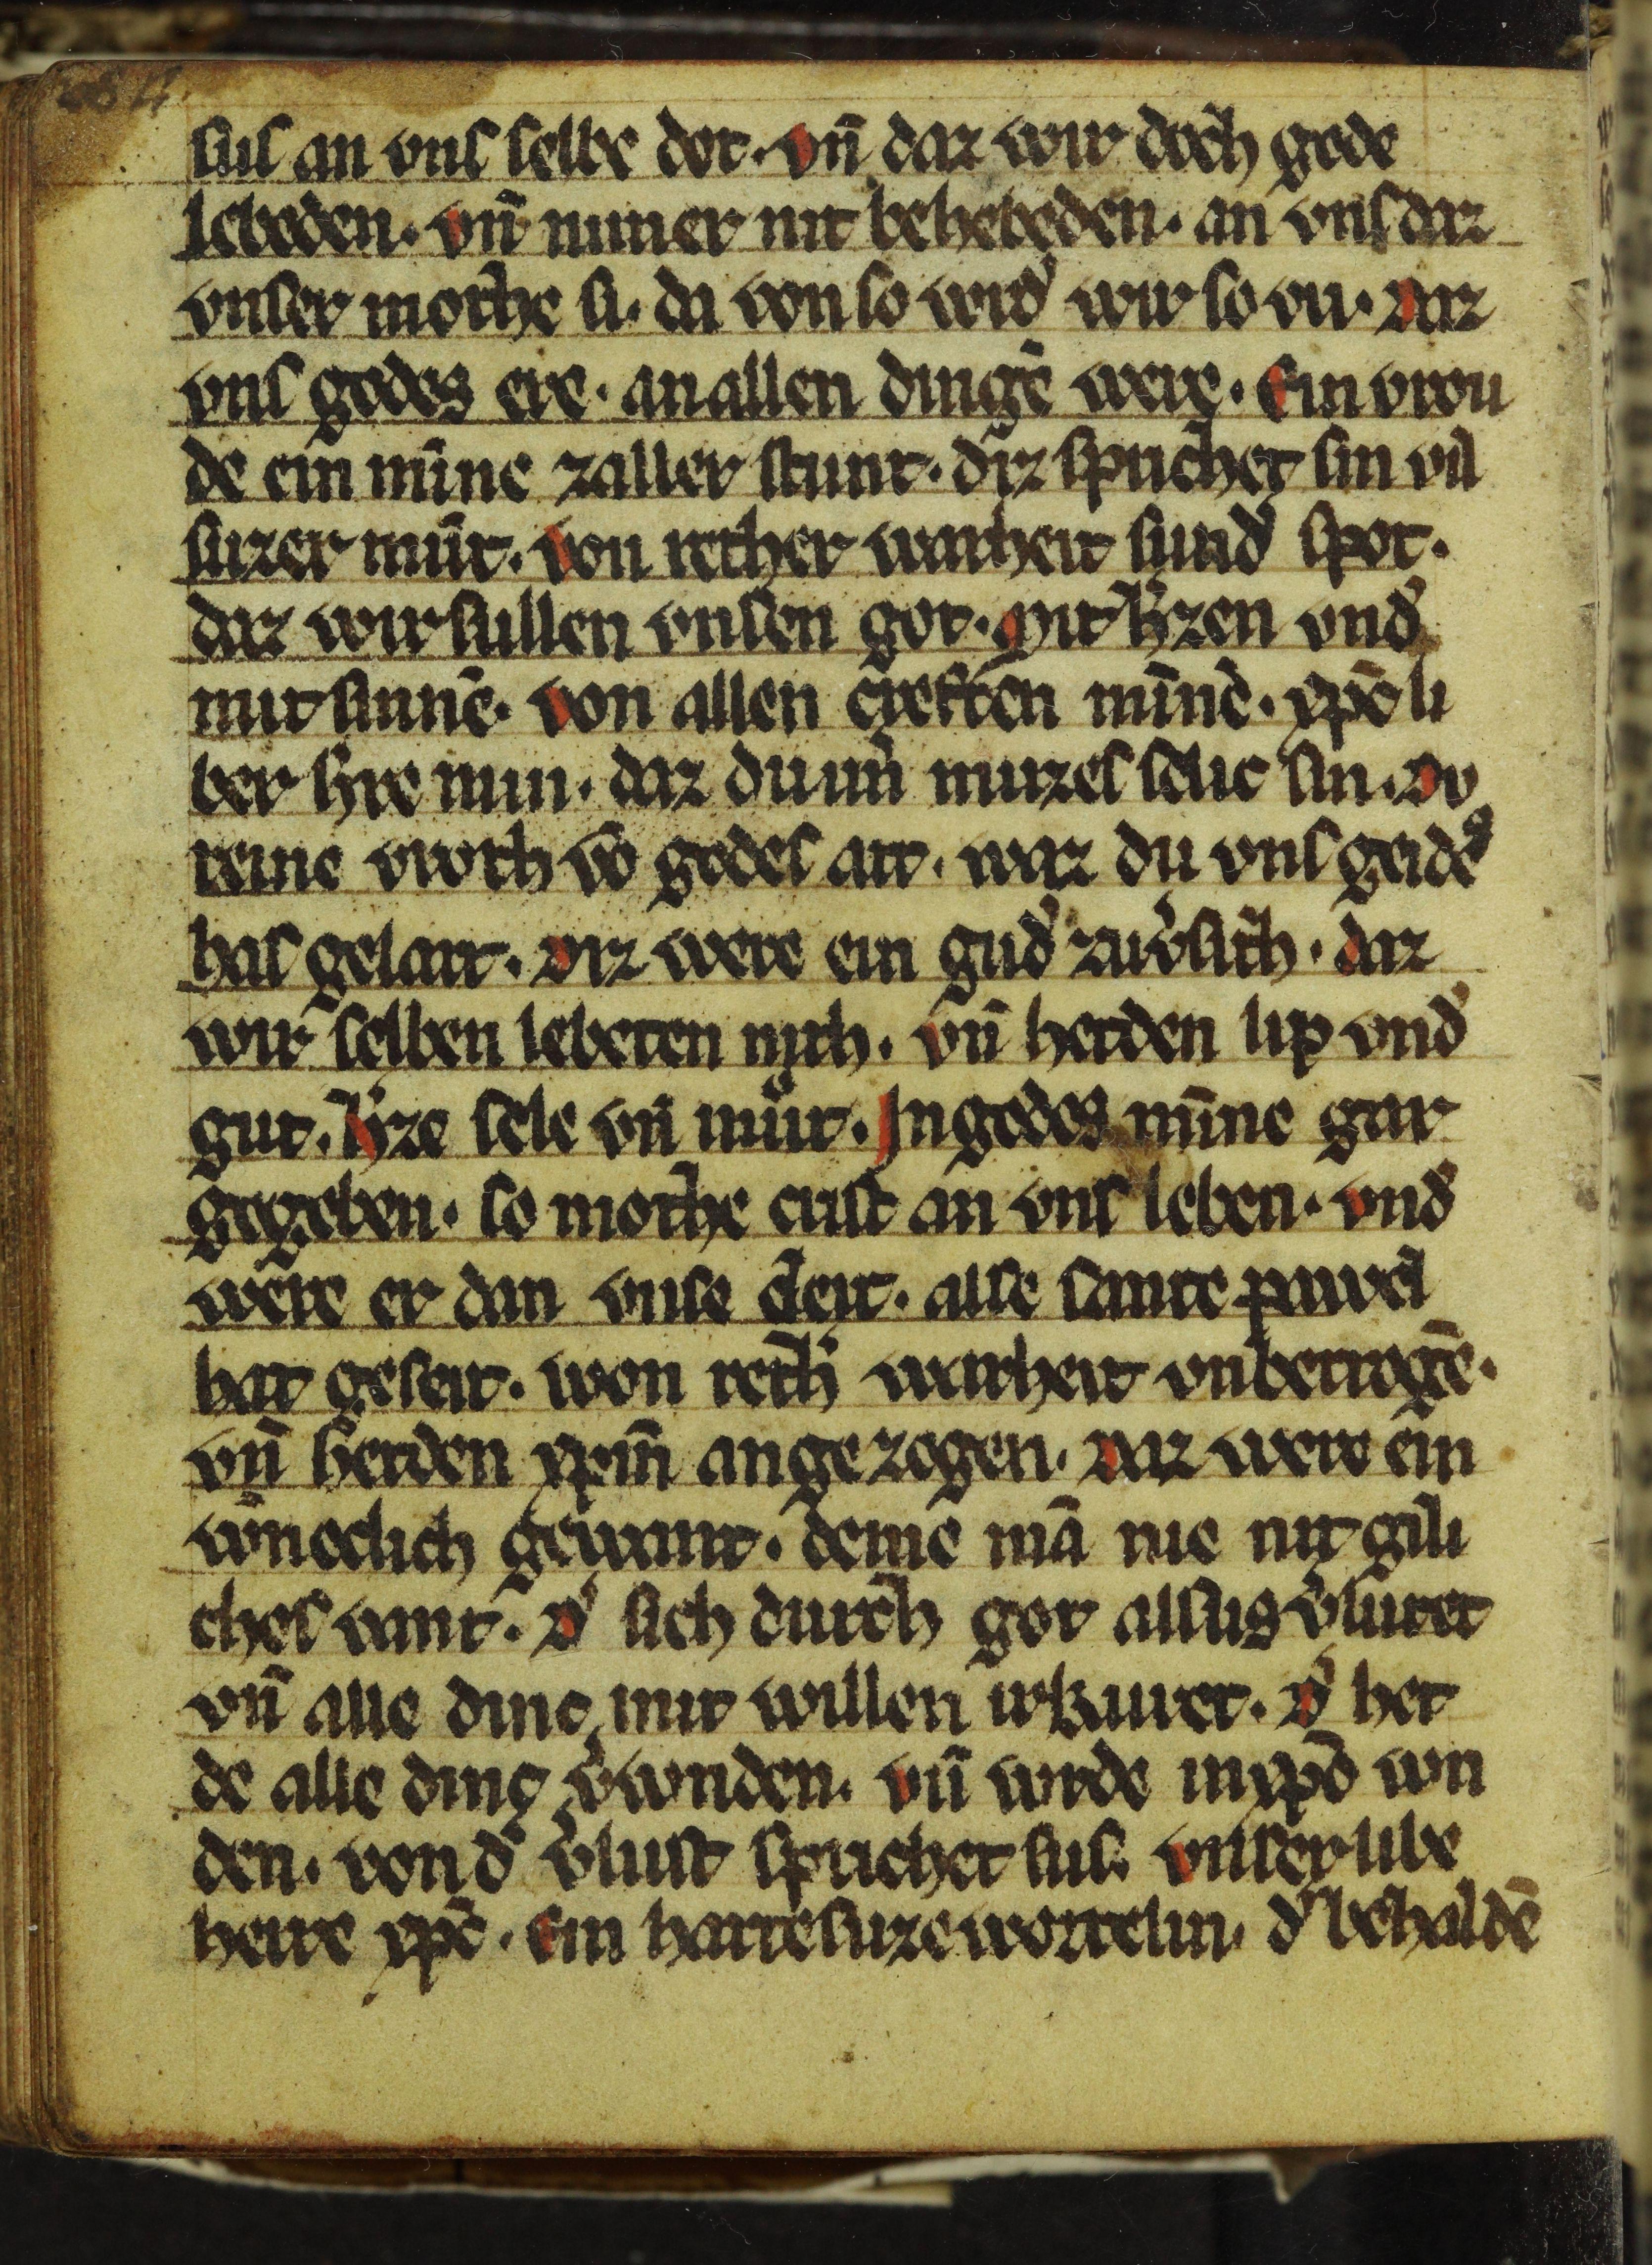 284
sus an vns selbe dot. vn̄ daz wir doch gode
lebeden. vn̄ nimer nit behebeden. an vns daz
vnser mothe si. da von so wrd᾽ wir so vri. Daz
vns godes ere. an allen dingē were. Ein vrou
de ein mīne zaller stunt. diz sprichet sin vil
suzer mūt. Von rether warheit sund᾽ spot.
daz wir sullen vnsen got. Mit h᾽zen vnd᾽
mit sinnē. von allen creften mīnē. xp̄e li
ber h᾽re min. daz du im᾽ muzes selic sin. Dv
reine vroth vō godes art. waz du vns geid᾽s
has gelart. Diz were ein gud᾽ zuv᾽sith. daz
wir selben lebeten nith. Vn̄ hetden lip vnd᾽
gut. H᾽ze sele vn̄ mūt. In godes mīne gar
gegeben. so mothe crist an vns leben. vnd᾽
were er dan vnse cleit. alse sante pauwel
hat geseit. won reth᾽ warheit vnbetrogē.
vn̄ hetden xp̄m̄ angezogen. Daz were ein
wneclich gewant. deme mā nie nit gili
ches vant. D᾽ sich durch got alsus v᾽luret
vn̄ alle dinc mit willen irkuret. D᾽ het
de alle dinc v᾽wnden. vn̄ wrde in xp̄o wn
den. von d᾽ v᾽lust sprichet sus. vnser libe
herre xp̄c. Ein harte suze wortelin. d᾽ behaldē